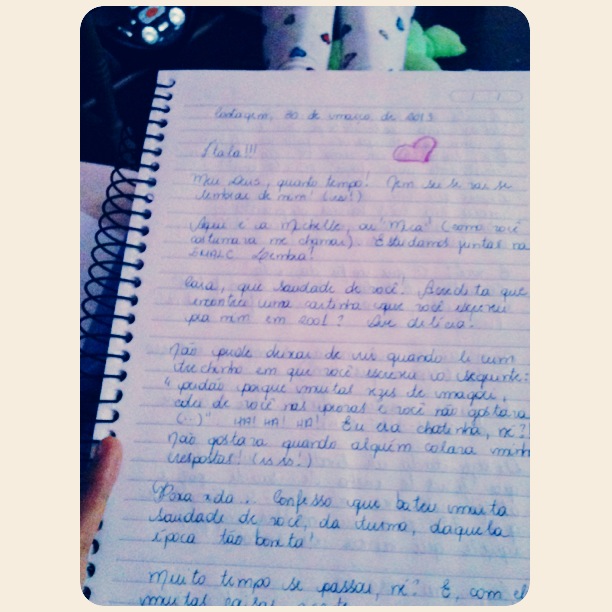 Contagem, 30 de março de 2013
Nala!!!
Meu Deus, quanto tempo! Nem sei se vai se
lembrar de mim! (rsrs!)
Aqui é a Michelle, ou "Mica" (como você
costumava me chamar). Estudamos juntas na
Lembra?
Cara, que saudade de você! Acredita que
encontrei uma cartinha que você escreveu
pra mim em 2001? Que delícia!
Não pude deixar de rir quando li um
trechinho em que você escreveu o seguinte:
"perdão porque muitas vezes te magoei,
colei de você nas provas e você não gostava
(...)" HA! HA! HA! Eu era chatinha, né?!
Não gostava quando alguém colava minhas
respostas! (rsrs!)
Confesso que bateu muita
saudade de você, da turma, daquela
época tão bonita!
Muito tempo se passou, né? E, com el
muitas